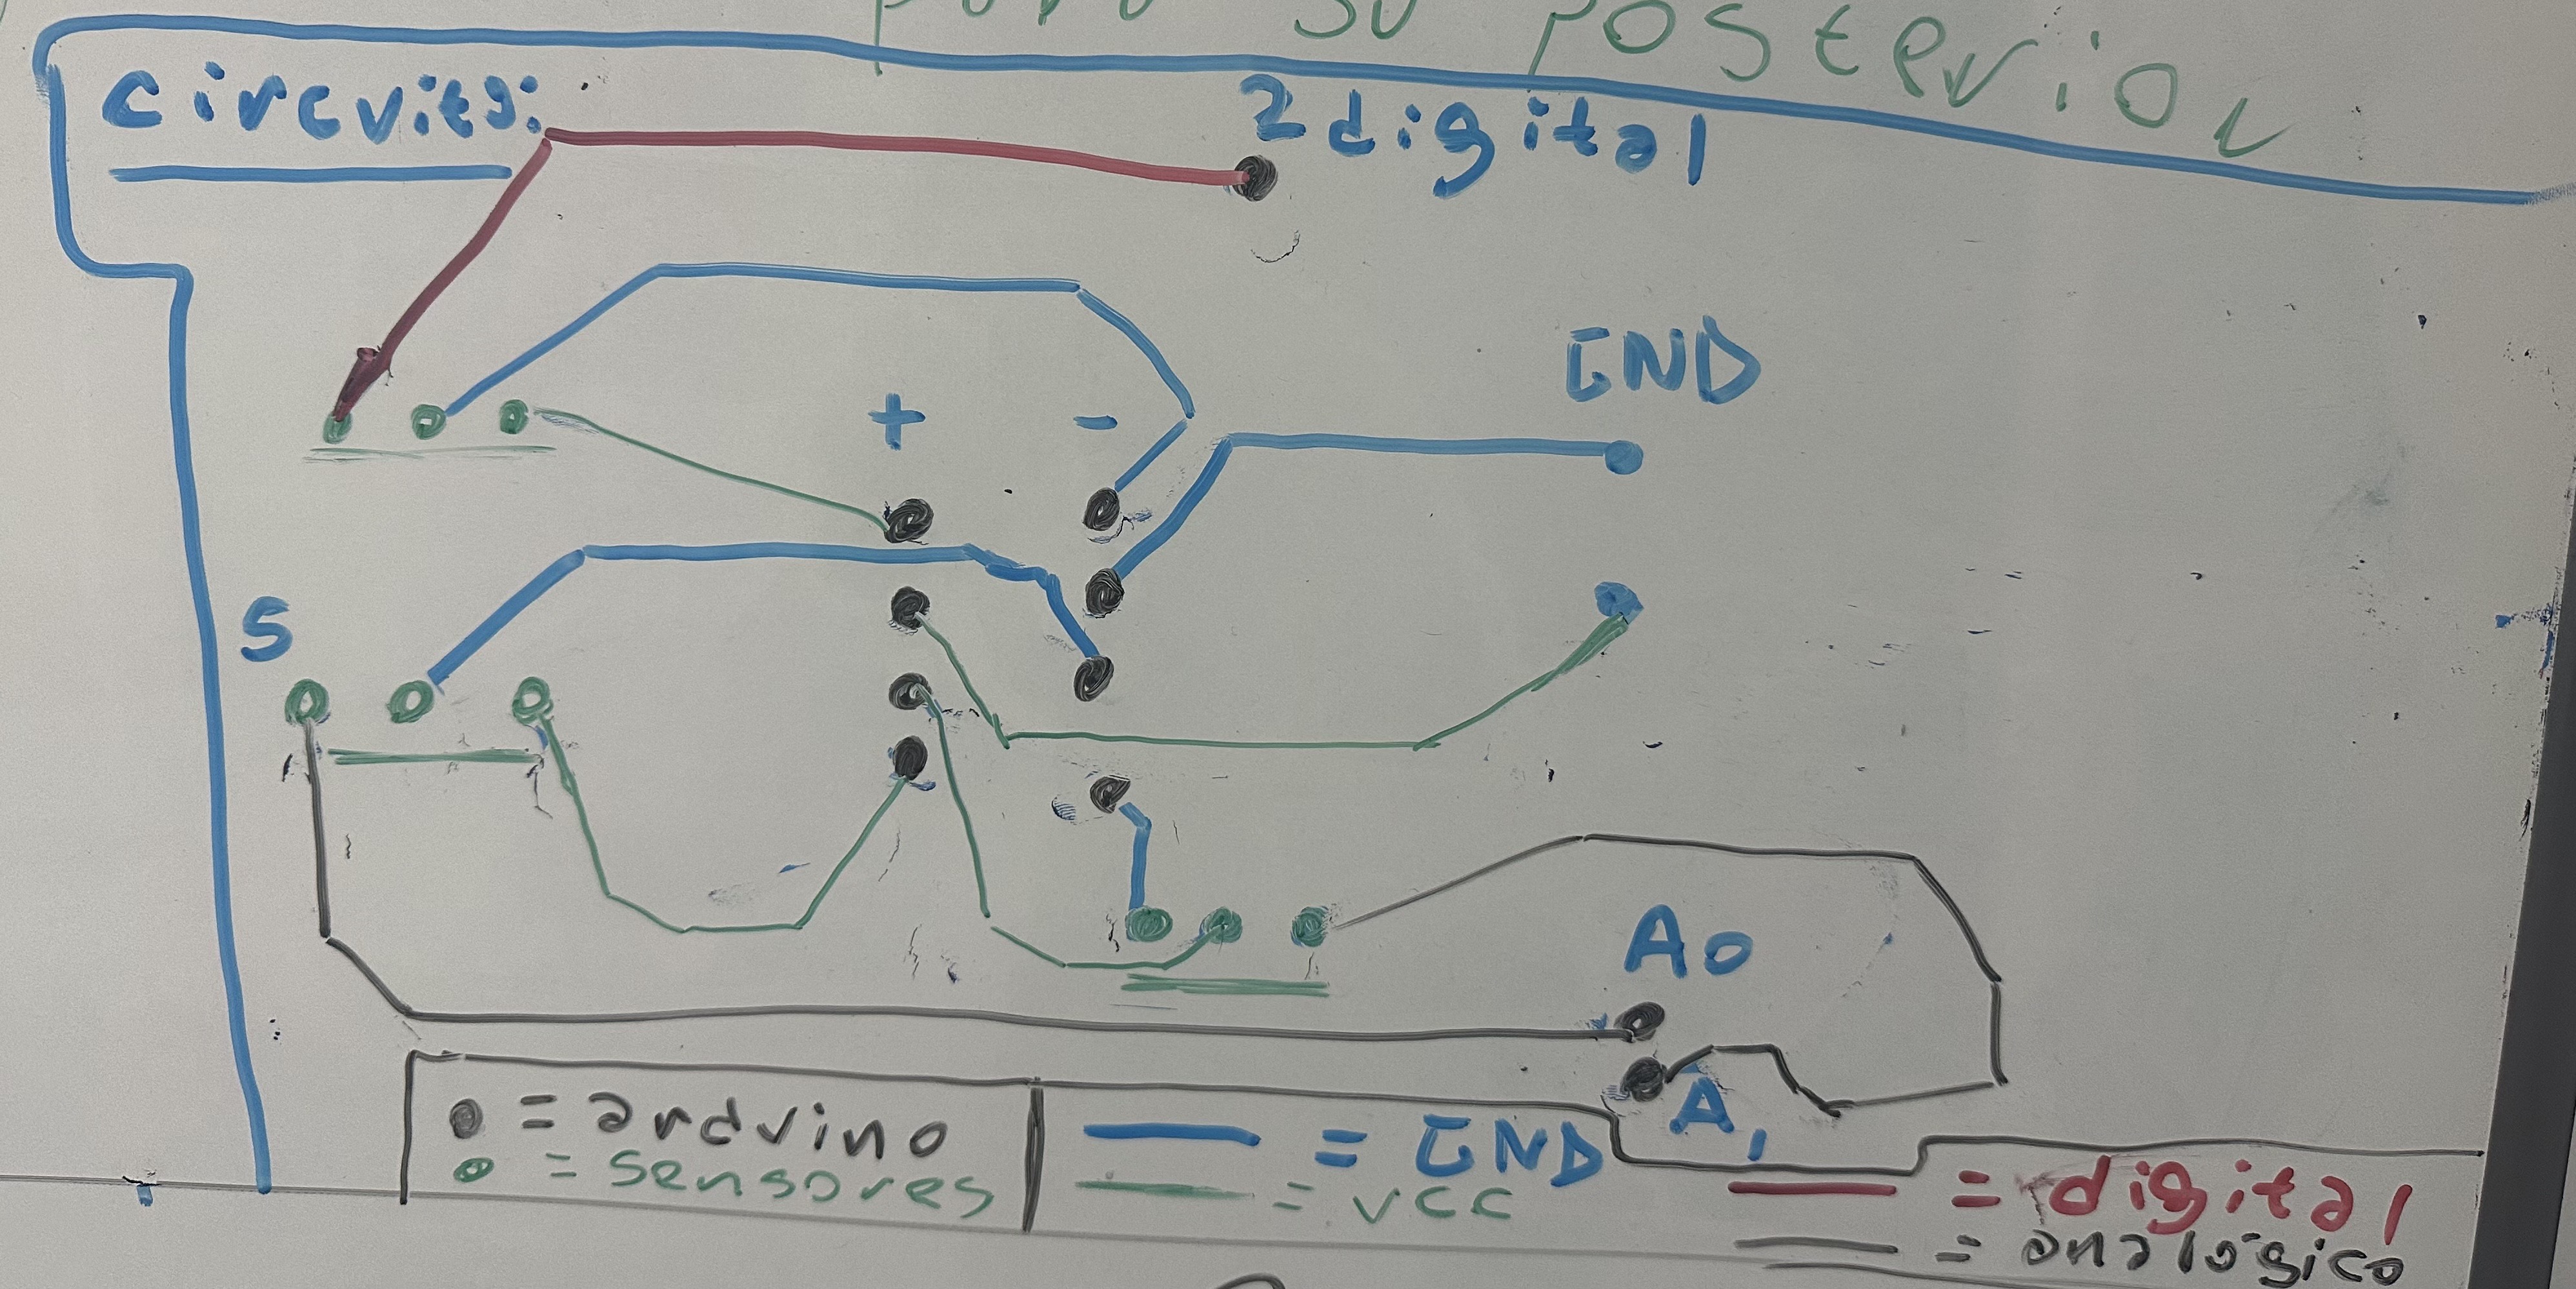 su posterior
circuito:
2 digital
GND
+ -
S
A0
A1
= arduino
= sensores
= GND
= vcc
= digital
= analógico